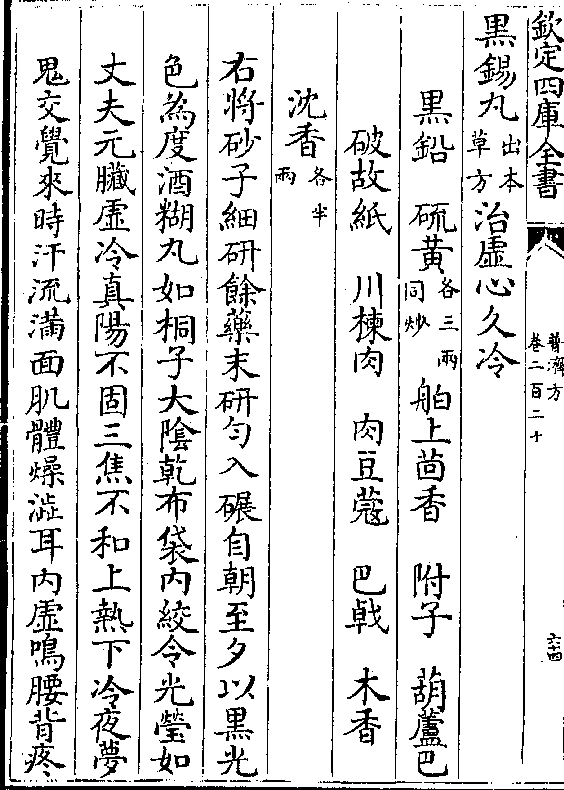 欽定四庫全書
普濟方
卷二百二十
六十四
黑錫丸出本草方治虛心久冷
黑鉛 硫黃各三兩同炒 舶上茴香 附子 葫蘆巴
破故紙 川楝肉 肉豆蔻 巴戟 木香
沈香各半兩
右將砂子細研餘藥末研勻入碾自朝至夕以黑光
色為度酒糊丸如桐子大陰乾布袋內絞令光瑩如
丈夫元臟虛冷真陽不固三焦不和上熱下冷夜夢
鬼交覺來時汗流滿面肌體燥澁耳內虛鳴腰背疼